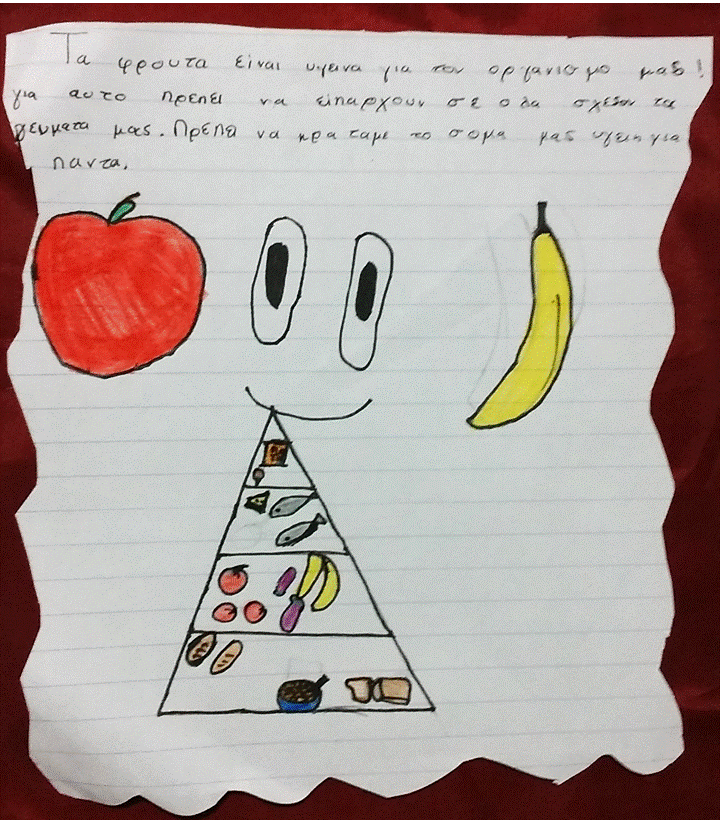 Τα φρουτα ειναι υγεινα για τον οργανισμο μας!
για αυτο πρεπει να είπαρχουν σε ολα σχεδον τα
γευματα μας. Πρεπει να κραταμε το σομα μας υγειη για
παντα.